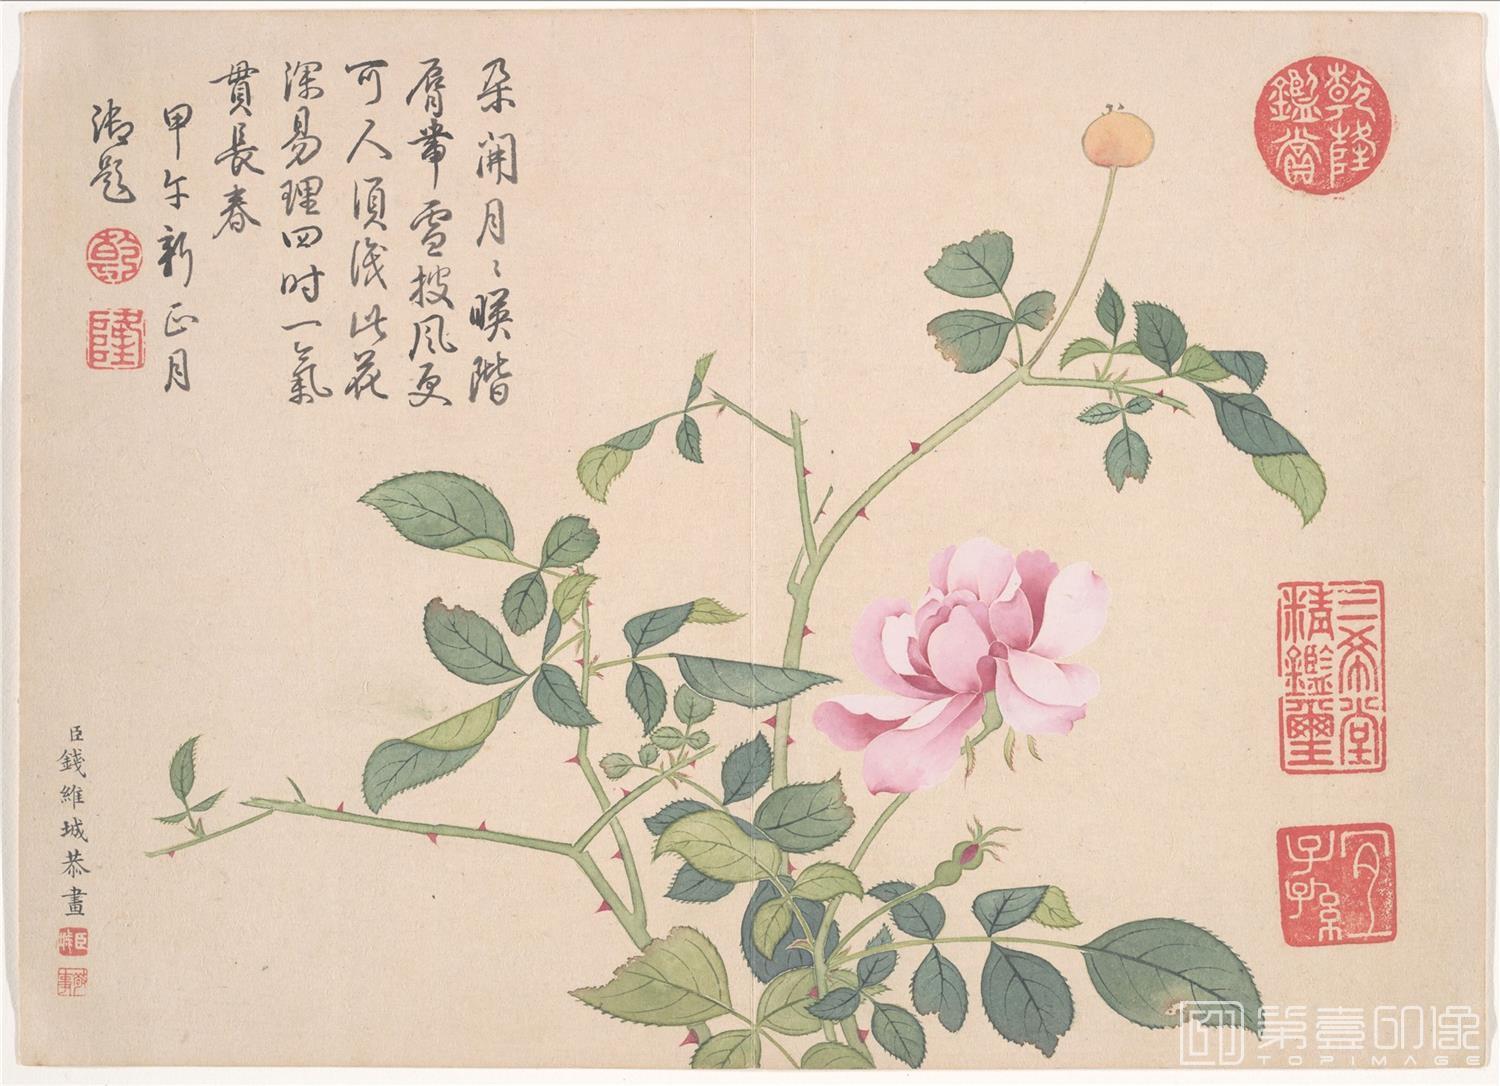 朵開月〻暎階
脣帶雪披風更
可人須識此花
深易理四時一氣
貫長春
甲午新正月
御題
乾
隆
臣錢維城恭畫
乾隆鑑賞
三希堂精鑑璽
宜子孫
第壹印像
TOPIMAGE